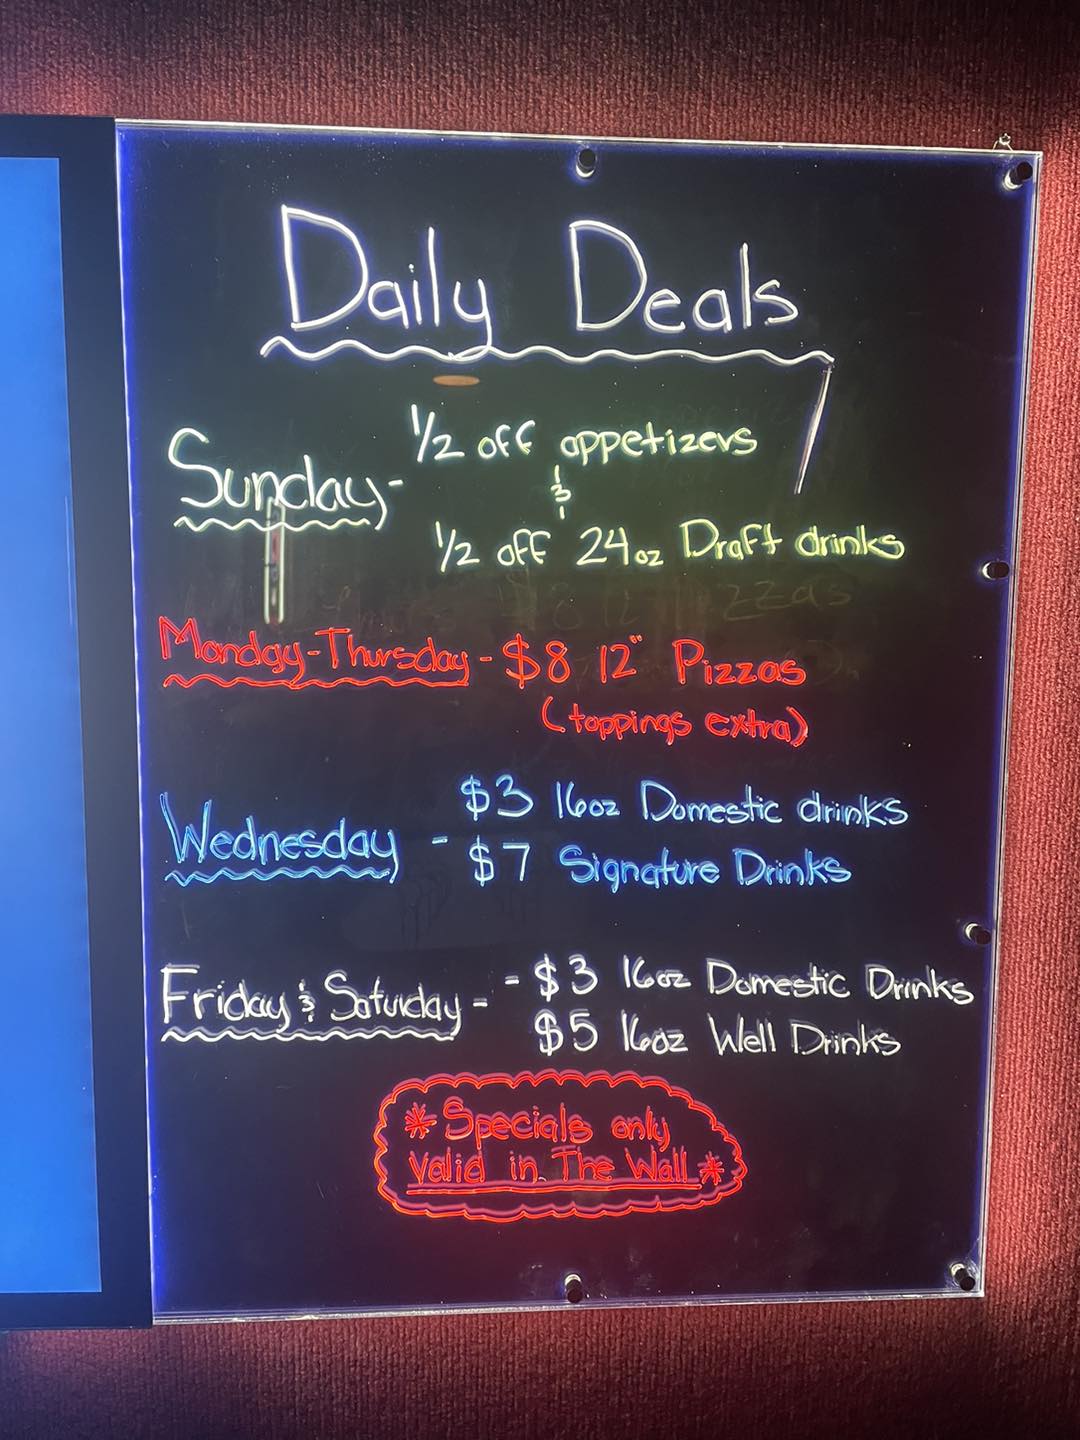 Daily Deals
Sunday- 1/2 off appetizers
&
1/2 off 24oz Draft drinks
Monday-Thursday - $8 12" Pizzas
(toppings extra)
Wednesday - $3 16oz Domestic drinks
$7 Signature Drinks
Friday & Saturday - - $3 16oz Domestic Drinks
$5 16oz Well Drinks
* Specials only
valid in The Wall *